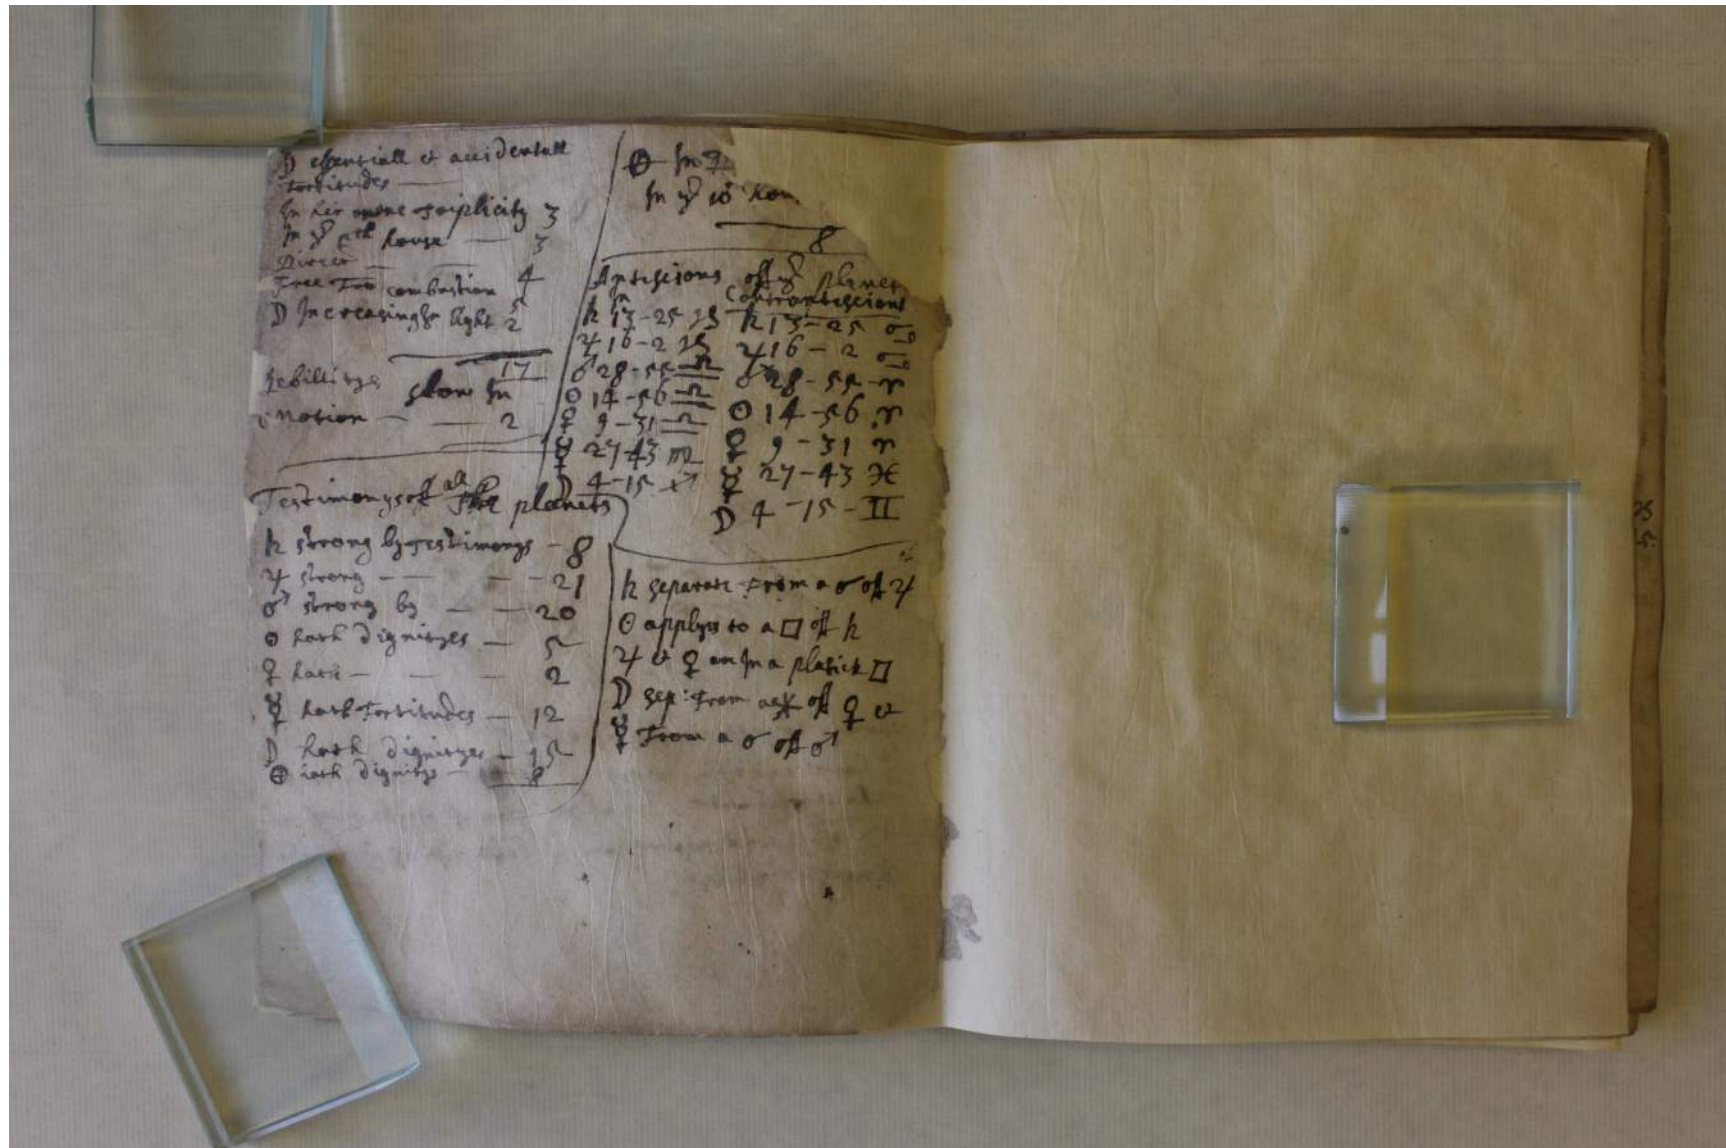 ☽ essentiall et accidentall
fortitudes
In her owne triplicity 3
In yᵉ house — 3
Free combustion 4
☽ Increasing In light 2
17
debilityes slow In
motion — 2
Testimonys of all the planets
♄ strong by testimonys — 8
♃ strong — — — 21
♂ strong by — — 20
☉ hath dignityes — 5
♀ hath — — — 2
☿ hath fortitudes — 12
☽ hath dignityes — 15
⊕ hath dignitys — 8
⊕ In
In yᵉ 10
8
Antiscions of yᵉ planets
In Contrantiscions
♄ 13-25 ♑ ♄ 13-25 ♋
♃ 16-2 ♑ ♃ 16-2 ♋
♂ 28-55 ♎ ♂ 28-55 ♈
☉ 14-56 ♎ ☉ 14-56 ♈
♀ 9-31 ♎ ♀ 9-31 ♈
☿ 27-43 ♍ ☿ 27-43 ♓
☽ 4-15 ♐ ☽ 4-15-♊
♄ separate from a ☌ off ♃
☉ applys to a □ off ♄
♃ et ♀ are In a platick □
☽ sep: from a ⚹ off ♀ et
☿ from a ☌ off ♂